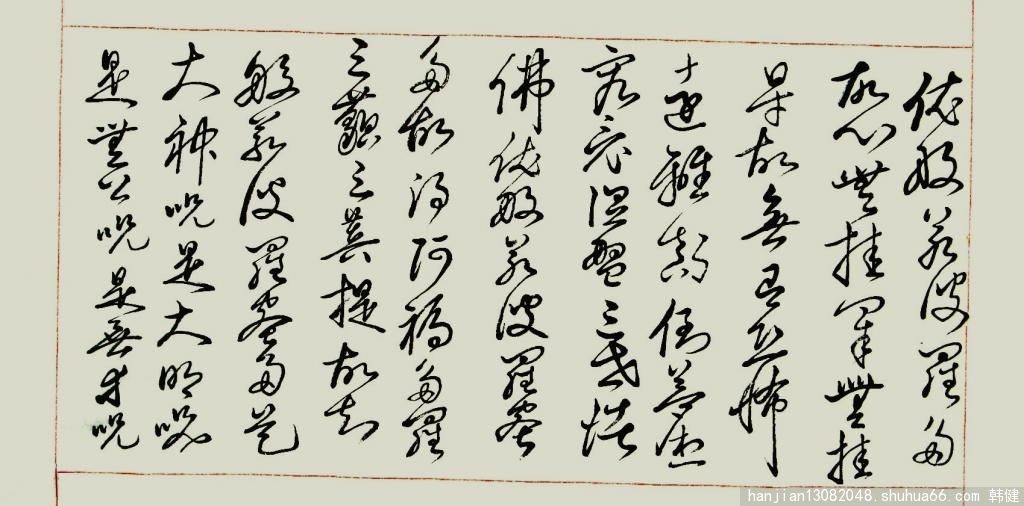 依般若波羅多
故心無挂罣無挂
故無有恐怖
遠離顛倒夢想
究竟涅盤三世諸
佛依般若波羅蜜
多故得阿耨多羅
三藐三菩提故知
般若波羅蜜多是
大神呪是大明呪
是無上呪是無等呪
hanjian13082048.shuhua66.com 韩健